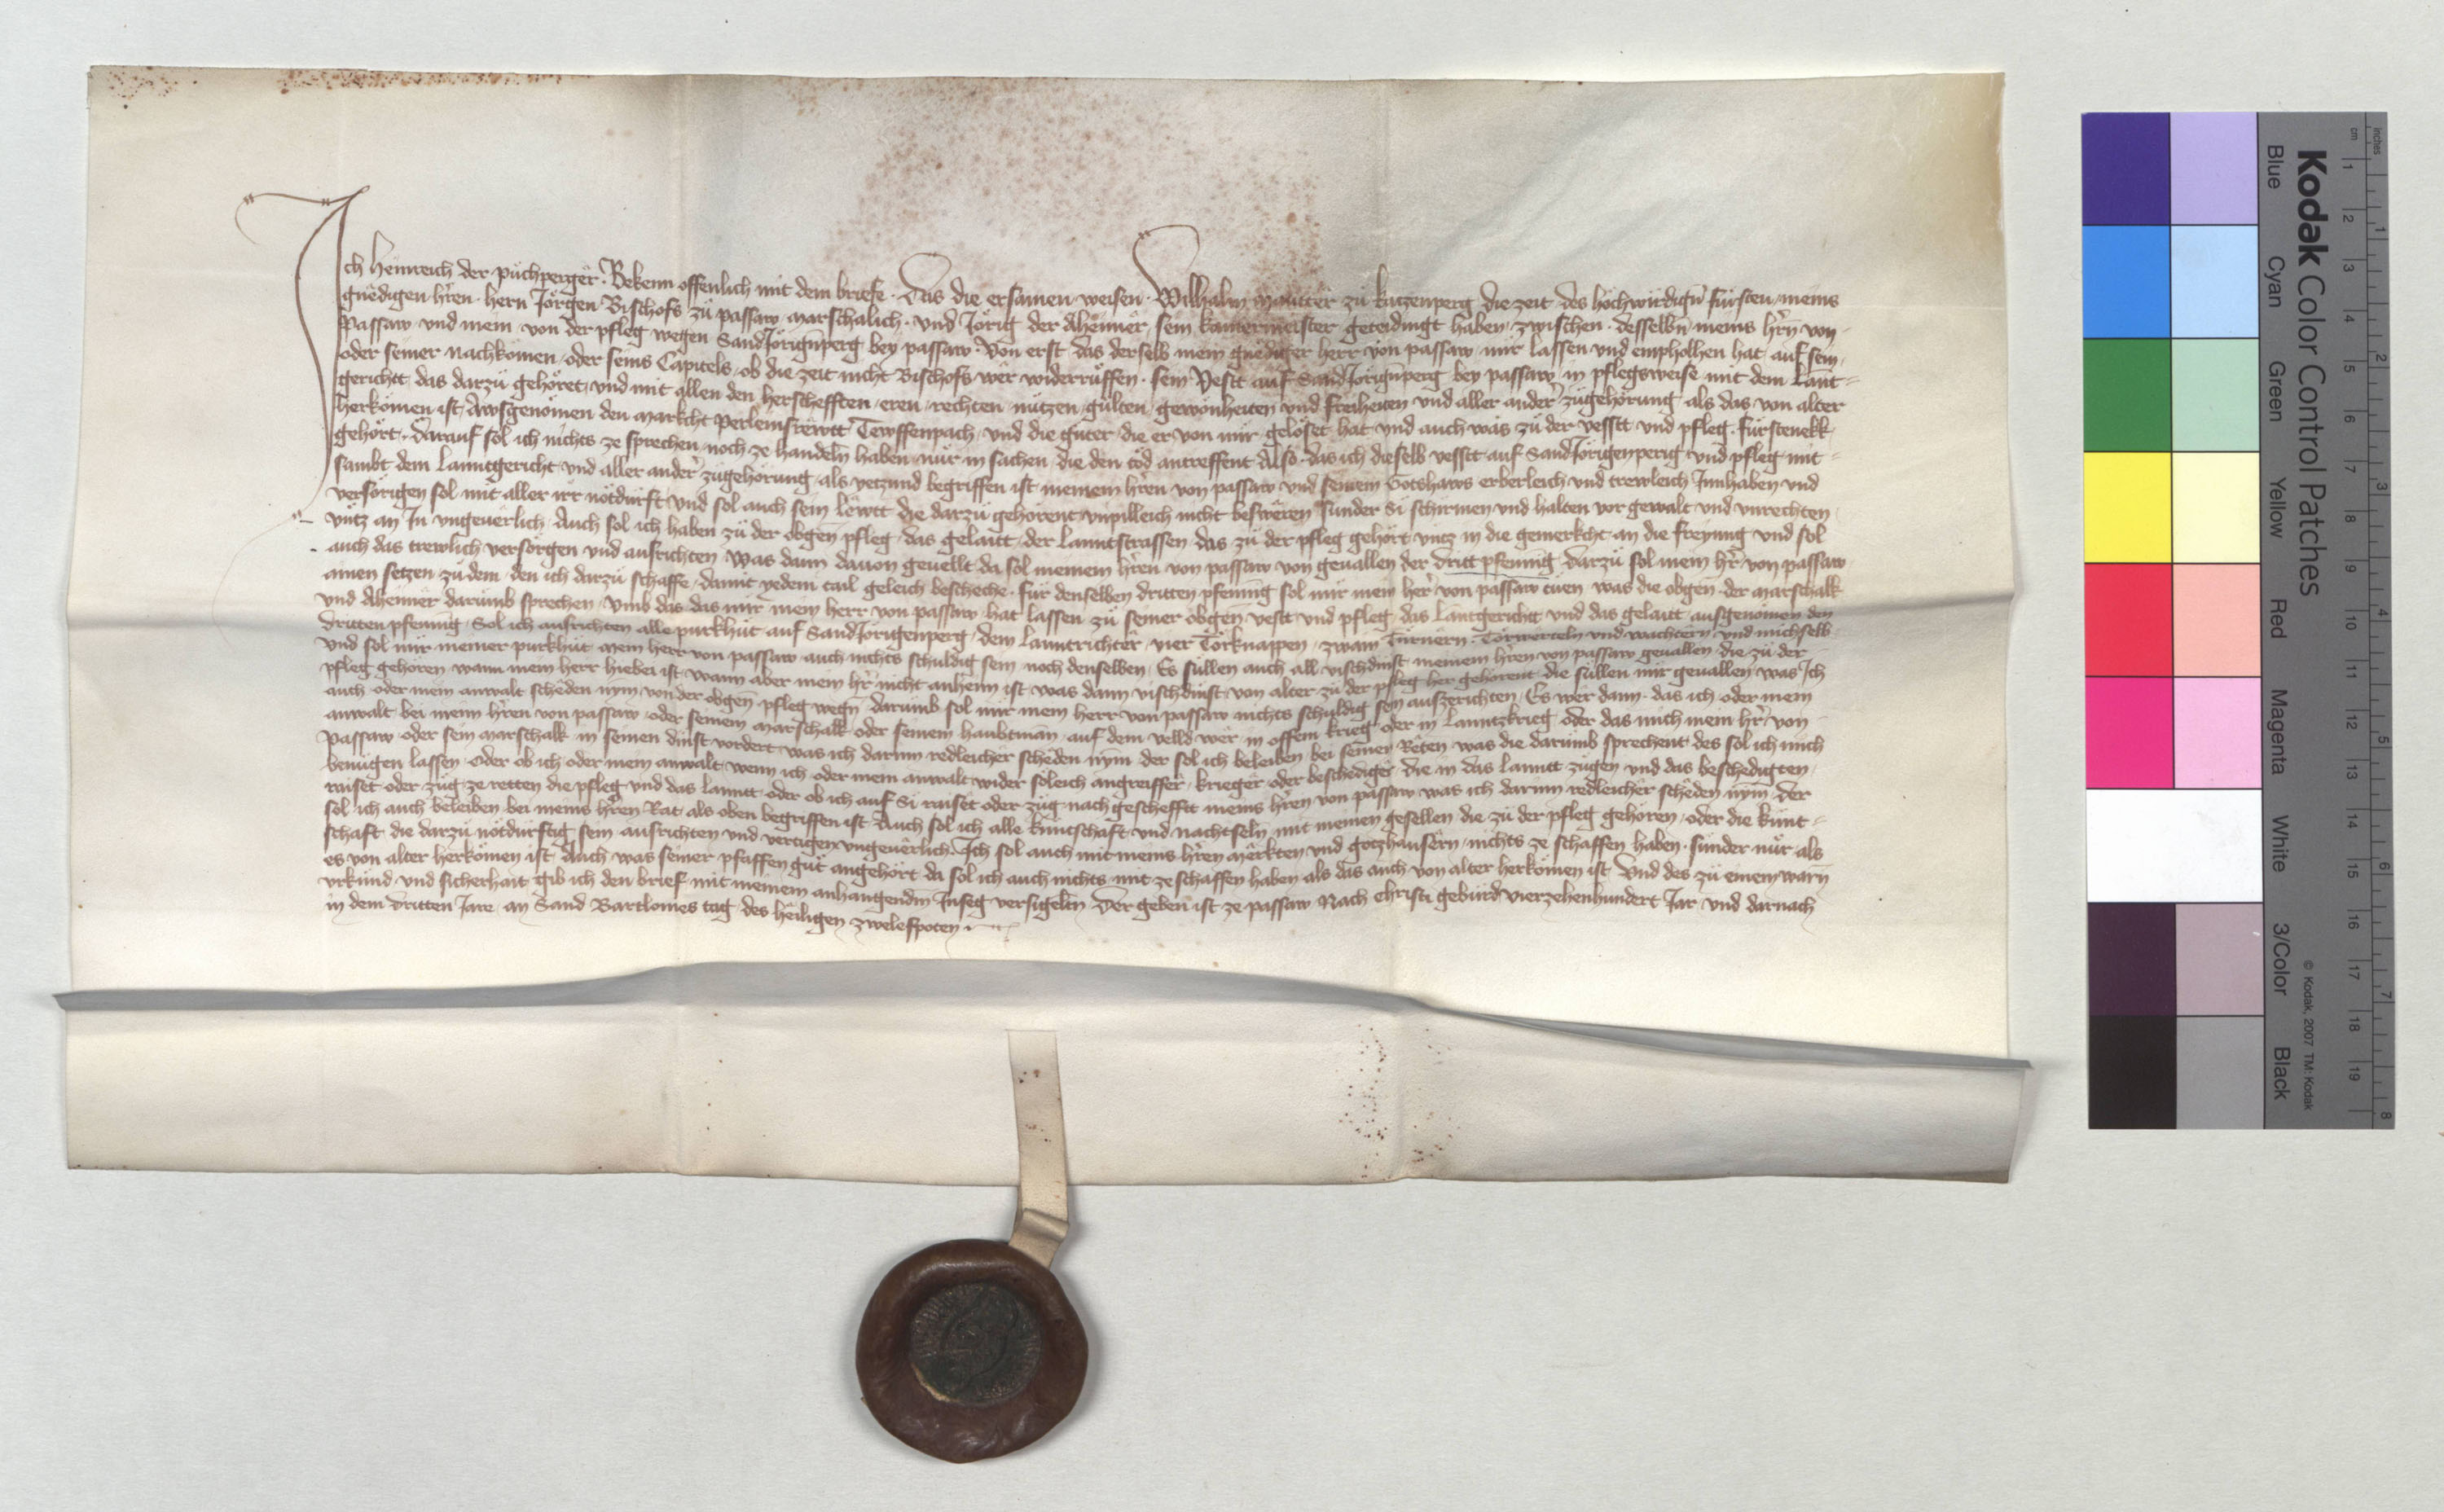 Ich Heinreich der Püchperger. Bekenn offenlich mit dem briefe. Das die ersamen weisen. Wilhalm Mautter zu katzenperg die zeit des höchwirdigñ fürsten meins
gnëdigen hr̄en. hern Jörgen Bischofs zü passaw Marschalich. und Jörig der Ahaimer, sein kamermeister geteidingt haben, zwischen. desselbñ meins hr̄n von
Passaw und mein von der pfleg wegen Sand Jörignperg bey passaw. Von erst das derselb mein gnëdiger herr von passaw mir lassen und empholhen hat auf sein,
oder seiner nachkomen, oder seins Capitels, ob die zeit nicht Bischofs wër widerrüffen. sein Vestt auf Sand Jörignperg bey passaw in pflegsweise mit dem Lant=
gerichtt das darzü gehöret, und mit allen den herschefften, eren, rechten, nützen, gülten, gewonheiten und freiheiten und aller ander zügehörung als das von alter
herkömen ist, Awsgenömen den Markcht Perleinsrëwtt Tewffenpach, und die güter die er von mir gelöset hat und auch was zü der vesstt und pfleg. Fürstenekk
gehört. darauf sol ich nichts ze sprechen noch ze handeln haben nür in sachen, die den töd antreffent Also. das ich dieselb vesstt auf Sand Jörigenperig und pfleg mit=
sambt dem Lanntgericht und aller ander zügehörung, als yetzund begriffen ist meinem hr̄en von passaw und seinem Gotshaws erberleich und trewleich Innhaben und
versörigen sol mit aller irr nötdürft und sol auch sein lëwtt die darzü gehörent unpilleich nicht beswëren sunder si schirmen und halten vor gewalt und unrechten
üntz an In ungeuërlich. Auch sol ich haben zü der obgen̄ pfleg. das gelaitt. der Lanntstrassen, das zü der pfleg gehört üntz in die gemerkcht an die freyung und sol
auch das trewlich versorgen und aufrichten Was dann dauon geuellt da sol meinem hr̄en von passaw von geuallen der dritt pfenning darzü sol mein hr̄ von passaw
ainen setzen, zü dem, den ich darzü schaffe, damit yedem tail geleich beschehe. für denselben dritten pfennig sol mir mein her̄ von passaw tüen was die obgen̄ der Marschalk
und Ahaimer darümb sprechen, Umb das das mir mein herr von passaw hat lassen zü seiner obgen̄ vestt und pfleg, das Lantgericht und das gelaitt ausgenömen den
dritten pfennig, Sol ich ausrichten alle purkhüt auf Sand Jörigenperg, dem Lanntrichter, vier Torknappen, zwain Türnern. Torwerteln und wachtern und mich selb=
und sol mir meiner purkhüt mein herr von passaw auch nichts schuldig sein noch denselben, Es süllen auch all vischdinst meinem hr̄en von passaw geuallen die zü der
pfleg gehören wann mein herr hiebei ist, wann aber mein hr̄ nicht anheim ist was dann vischdinst von alter zü der pfleg her gehörent die süllen mir geuallen was Ich
auch oder mein anwalt schëden nÿm von der obgen̄ pfleg wegñ darümb sol mir mein herr von passaw nichts schuldig sein aufzerichten, Es wër dann das ich oder mein
anwalt bei meim hr̄en von passaw oder seinem marschalk oder seinem haubtman auf dem velld wër in offem krieg oder in Lanntzkrieg oder das mich mein hr̄ von
Passaw oder sein Marschalk in seinen dinst vordert was ich darinn redleicher schëden nÿm der sol ich beleiben bei seiner Rëten was die darümb sprechent des sol ich mich
benügen lassen. Oder ob ich oder mein anwalt wenn ich oder mein anwalt wider soleich angreiffer, krieger oder beschediger die in das Lanntt zügen und das beschedigten
raiset oder züg ze retten die pfleg und das Lanntt oder ob ich auf si raiset oder züg nach gescheffte meins hr̄en von passaw was ich darinn redleicher schëden nÿm der
sol ich auch beleiben bei meins hr̄en Rat als oben begriffen ist Auch sol ich alle küntschaft und nachtseln mit meinen gesellen die zü der pfleg gehören oder die künt=
schaft die darzü nötdürftig sein ausrichten und vertigen ungeuërlich. Ich sol auch mit meins hr̄en mërkten und gotzhäusern nichts ze schaffen haben, sünder nür als
es von alter herkömen ist Auch was seiner pfaffen güt angehört da sol ich auch nichts mit ze schaffen haben als das auch von alter herkömen ist Und des zü einem warn
urkünd und sicherhait gib ich den brief mit meinem anhangenden Insigl versigelten Der geben ist ze passaw Nach Christi gebürd vierzehenhundert Jar und darnach
in dem dritten Jare an Sand Bartlomes tag des heiligen zwelefpoten
Kodak Color Control Patches
Blue Cyan Green Yellow Red Magenta White 3/Color Black
© Kodak, 2007 TM: Kodak
cm 1 2 3 4 5 6 7 8 9 10 11 12 13 14 15 16 17 18 19
inches 1 2 3 4 5 6 7 8